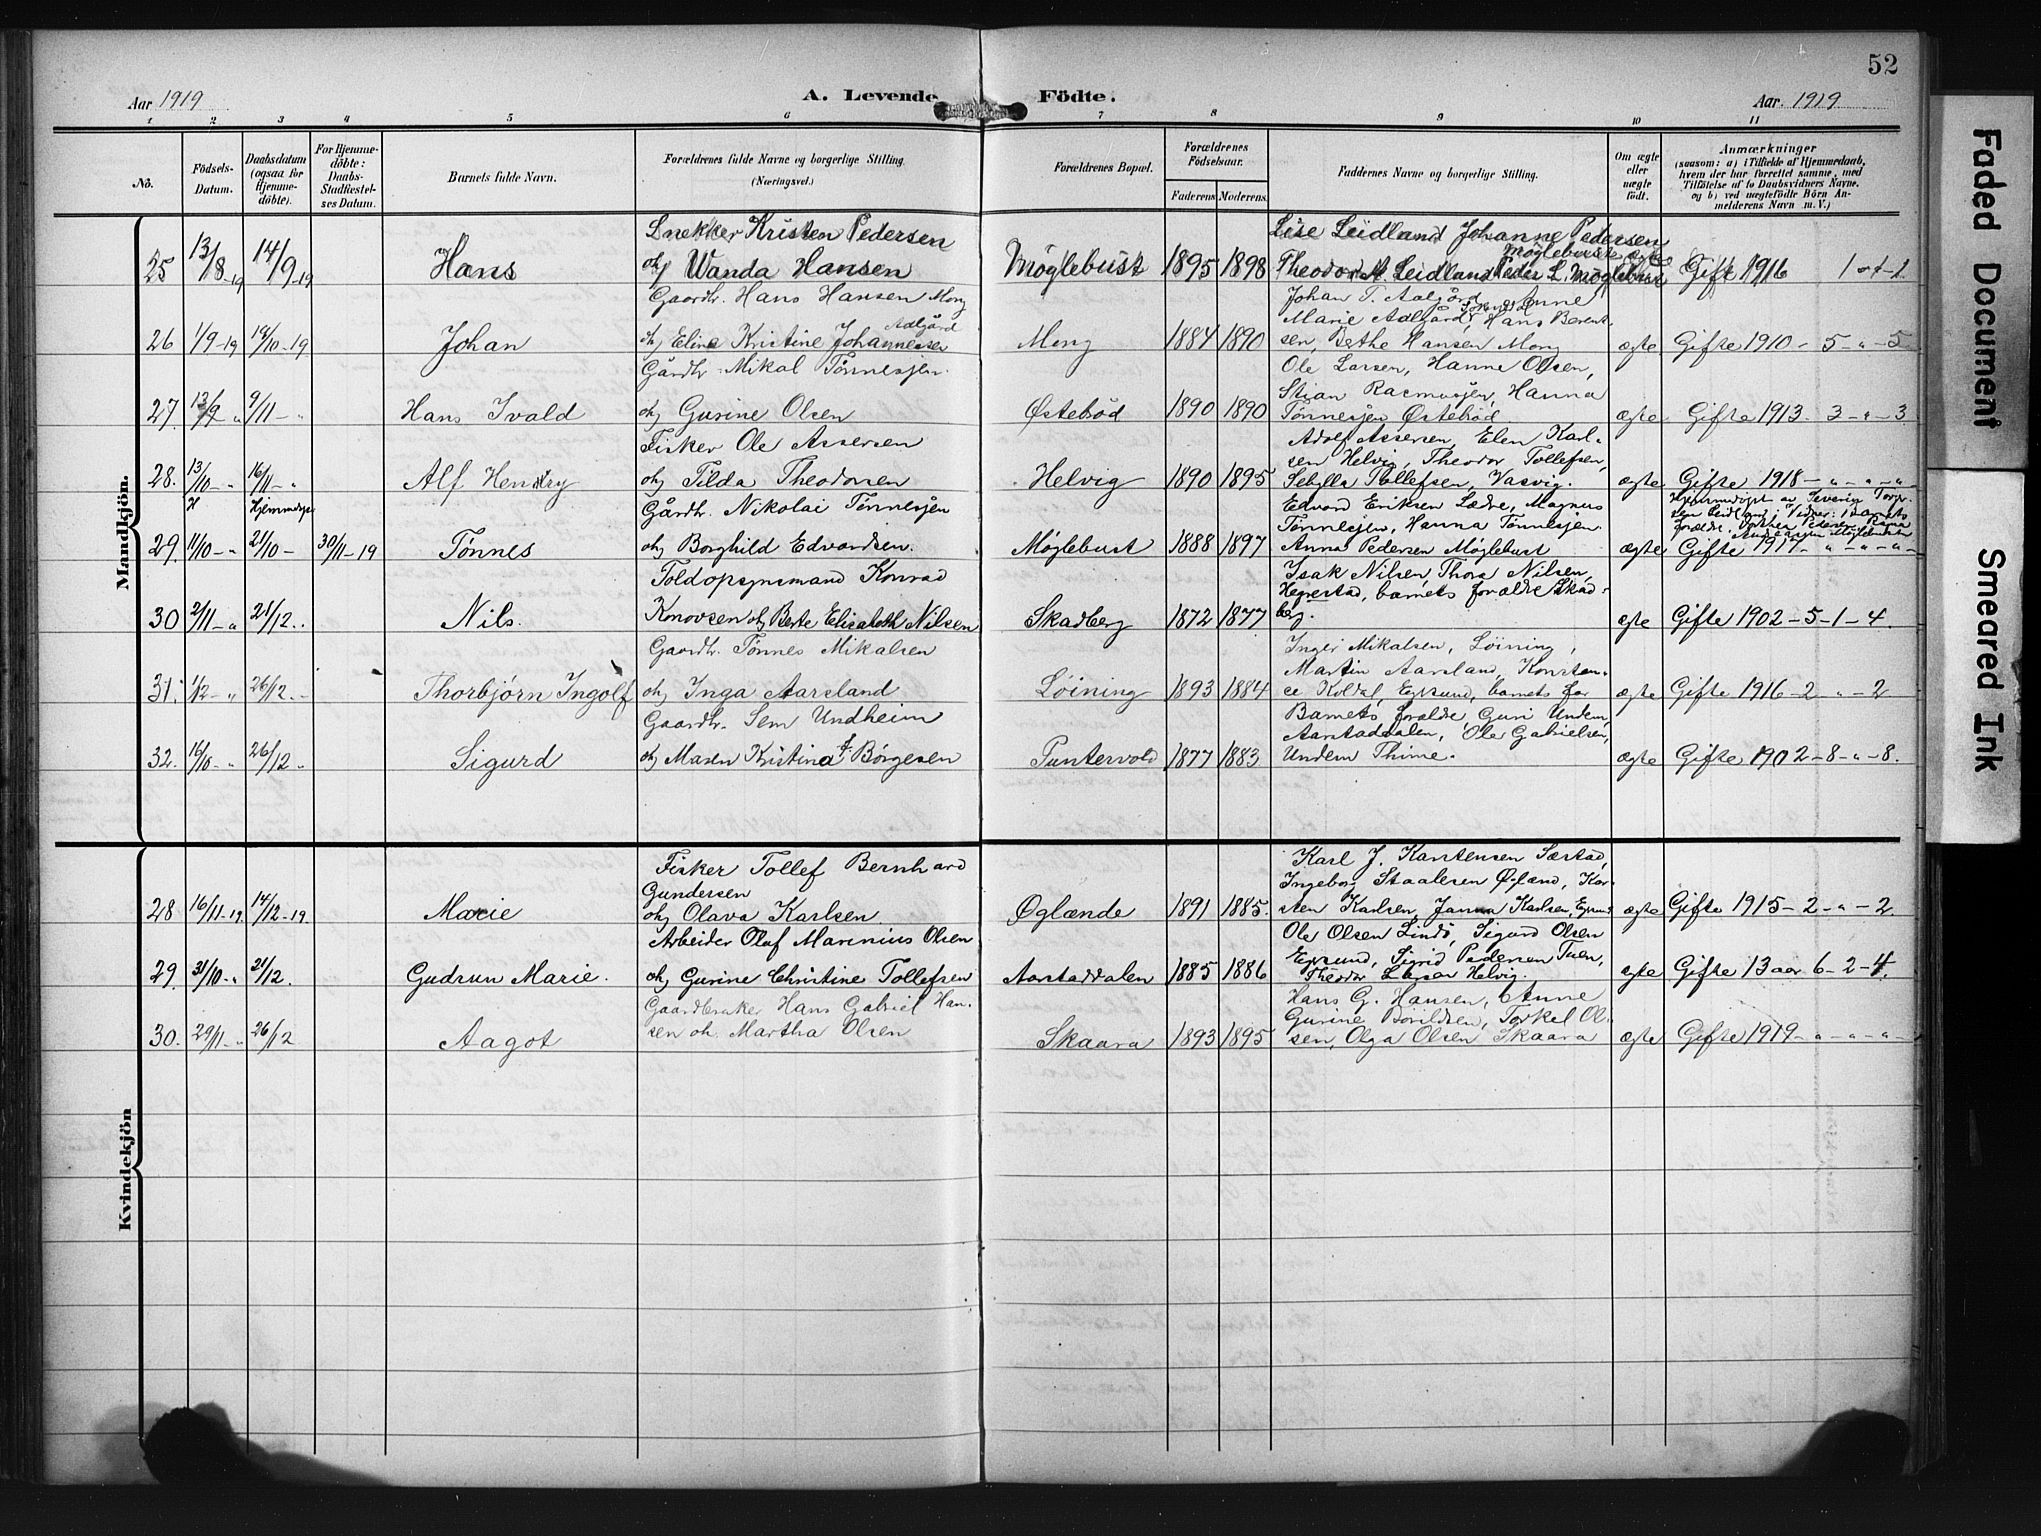 52
Aar 1919
A. Levende Födte.
Aar. 1919
1 2 3 4 5 6 7 8 9 10 11
No.
Födsels-Datum.
Daabsdatum (ogsaa for Hjemme-döbte).
For Hjemme-döbte: Daabs-Stadfæstel-ses Datum.
Barnets fulde Navn.
Forældrenes fulde Navne og borgerlige Stilling.
(Næringsvei.)
Forældrenes Bopæl.
Forældrenes Födselsaar.
Faderens Moderens.
Faddernes Navne og borgerlige Stilling.
Om ægte eller uægte födt.
Anmærkninger
(saasom: a) i Tilfælde af Hjemmedaab,
hvem der har forrettet samme, med
Tilföielse af to Daabsvidners Navne.
og b) ved uægtefödte Börn An-
melderens Navn m. V.)
Mandkjön.
25 13/8-19 14/9-19 Hans
Snekker Kristen Pedersen
og Wanda Hansen
Møglebust 1895 1898
Lise Leidland Johanne Pedersen
Møglebust
Theodor A. Leidland Peder L. Møglebust
Gift 1916
26 1/9-19 19/10-19 Johan
Gaardbr. Hans Hansen Mong
og Eline Kristine Johannessen
Aalgård
Mong 1884 1890
Johan T. Aalgård, Anne
Marie Aalgård, Hans Berent-
sen, Berthe Hansen Mong
ægte Gifte 1910 - 5 - " - 5
27. 13/9 " 9/11 - " Hans Ivald
Gårdbr. Mikal Tønnesjen
og Gurine Olsen
Østebød 1890 1890
Ole Larsen, Hanne Olsen,
Stian Rasmusjen, Hanna
Tønnesjen Østebød
ægte Gifte 1913 - 3 - " - 3
28. 13/10 - " 16/11 - " Alf Hendry
Fisker Ole Assersen
og Tilda Theodorsen
Helvig 1890 1895
Adolf Assersen, Elen Karl-
sen Helvig, Theodor Tollefsen,
Sebylla Tollefsen, Vasvig.
ægte Gifte 1918 - " - " - "
29. 11/10 - " 21/10 - 30/11-19 Tønnes
Gårdbr. Nikolai Tønnesjen
og Borghild Edvardsen.
Møglebust 1888 1897
Edvard Eriksen Lædre, Magnus
Tønnesjen, Hanna Tønnesjen
Anna Pedersen Møglebust
ægte Gifte 1917 - " - " - "
30 2/11 - " 21/12 - Nils.
Toldopsynsmand Konrad
Knovsen og Berte Elisabeth Nilsen
Skadberg 1872 1877
Isak Nilsen, Thora Nilsen,
Hegrestad, barnets forældre Skad-
berg.
ægte Gifte 1902 - 5 - 1 - 4.
31. 1/12 - " 26/12 - Thorbjørn Ingolf
Gaardbr. Tønnes Mikalsen
og Inga Aarsland
Løining 1893 1884
Inger Mikalsen, Løining,
Martin Aarsland, Konstan-
ce Koldal, Egersund, barnets for
ægte Gifte 1916 - 2 - " - 2
32. 16/10 - " 26/12 - Sigurd
Gaardbr. Sem Undheim
og Maren Kristina f. Børgesen
Puntervold 1877 1883
Barnets forældre, Guri Undem,
Aarstaddalen, Ole Gabrielsen,
Undem Thime.
ægte Gifte 1902 - 8 - " - 8.
Kvindekjön
28 16/11-19. 14/12-19. Marie
Fisker Tollef Bernhard
Gundersen
og Olava Karlsen
Øglænde 1891 1885.
Karl J. Karstensen Sæstad,
Ingeborg Staalesen Øglænd, Kar-
sten Karlsen, Janna Karlsen, Egersund
ægte Gifte 1915 - 2 - " - 2.
29. 31/10 - " 21/12. Gudrun Marie.
Arbeider Olaf Marinius Olsen
og Gurine Christine Tollefsen
Aarstaddalen 1885 1886
Ole Olsen Lindø, Sigurd Olsen
Egersund, Sigrid Pedersen Tuen,
Theodor Larsen Helvig.
ægte Gifte 13 aar 6 - 2 - 4.
30. 29/11 - " 26/12 Aagot
Gaardbruker Hans Gabriel Han-
sen og Martha Olsen
Skaara 1893 1895
Hans G. Hansen, Anne
Gurine Borildsen, Torkel Ol-
sen, Olga Olsen Skaara
ægte Gifte 1919 - " - " - "
Faded Document
Smeared Ink